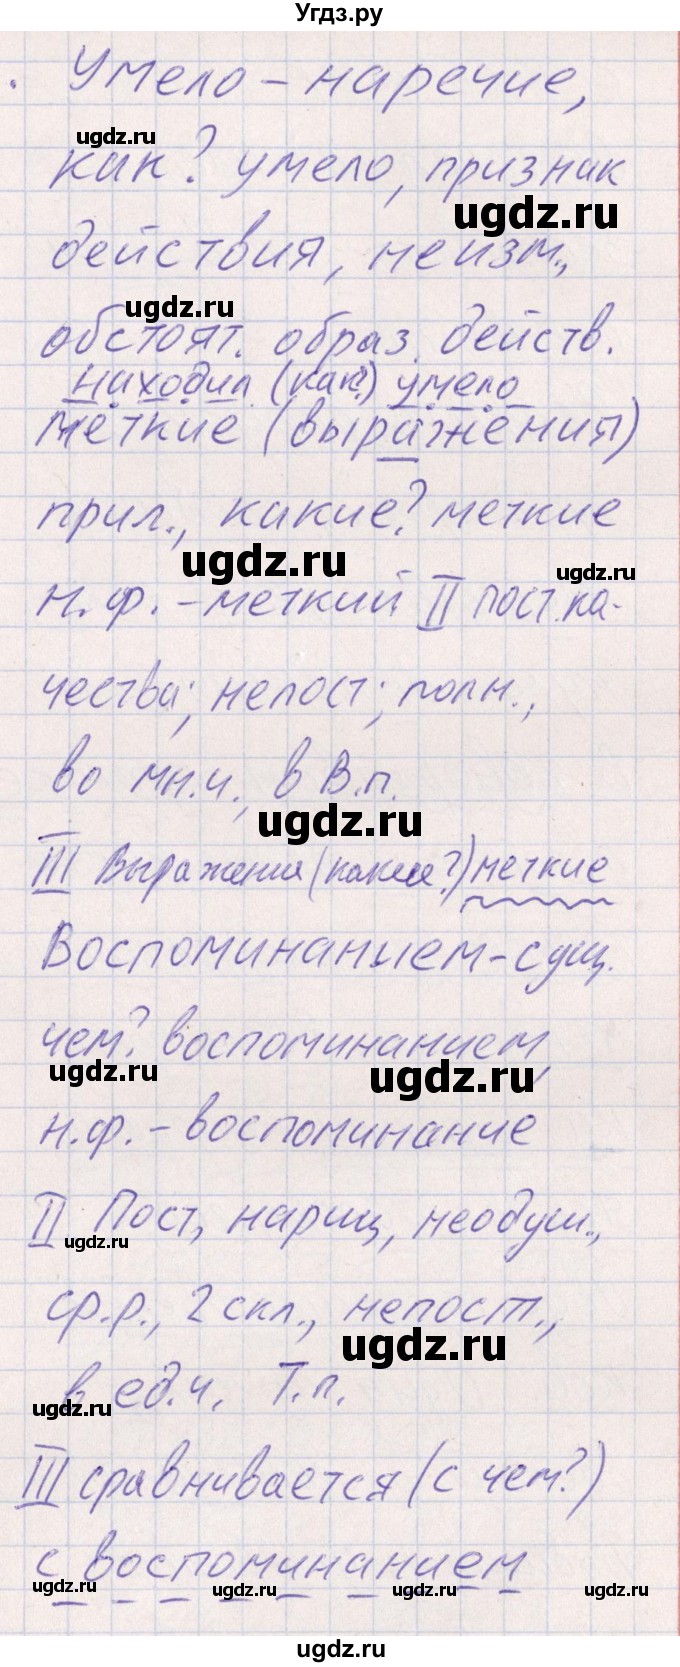 Угдз.ру
Умело – наречие,
ugdz.ru
как? умело, признак
ugdz.ru
действия, неизм.,
ugdz.ru
обстоят. образ. действ.
находил (как?) умело
меткие (выражения)
прил., какие? меткие
ugdz.ru
ugdz.ru
н.ф. – меткий II пост. ка-
чества; непост; полн.,
во мн.ч., в В.п.
ugdz.ru
III Выражения (какие?) меткие
Воспоминанием – сущ.
чем? воспоминанием,
ugdz.ru
ugdz.ru
н.ф. – воспоминание
II Пост, нариц, неодуш.,
ugdz.ru
ср.р., 2 скл., непост.,
ugdz.ru
в ед.ч. Т.п.
ugdz.ru
III сравнивается (с чем?)
с воспоминанием
ugdz.ru ugdz.ru ugdz.ru ugdz.ru
ugdz.ru